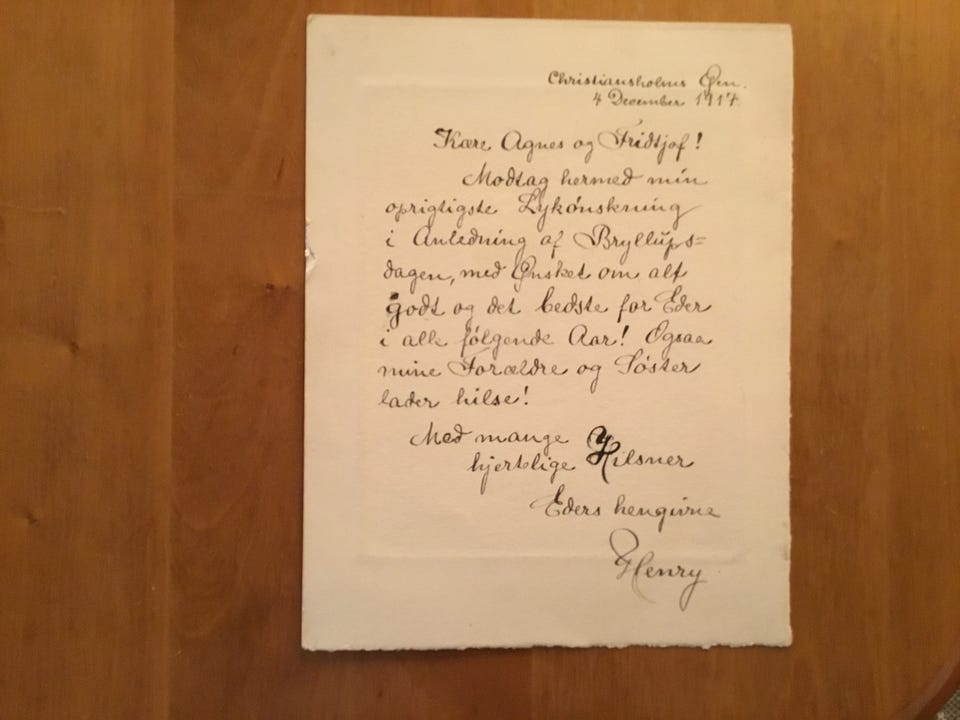 Christiansholms Øen.
4 December 1917.
Kære Agnes og Fridtjof!
Modtag hermed min
oprigtigste Lykønskning
i Anledning af Bryllups=
dagen, med Ønsket om alt
godt og det bedste for Eder
i alle følgende Aar! Ogsaa
mine Forældre og Søster
lader hilse!
Med mange
hjertelige Hilsner
Eders hengivne
Henry